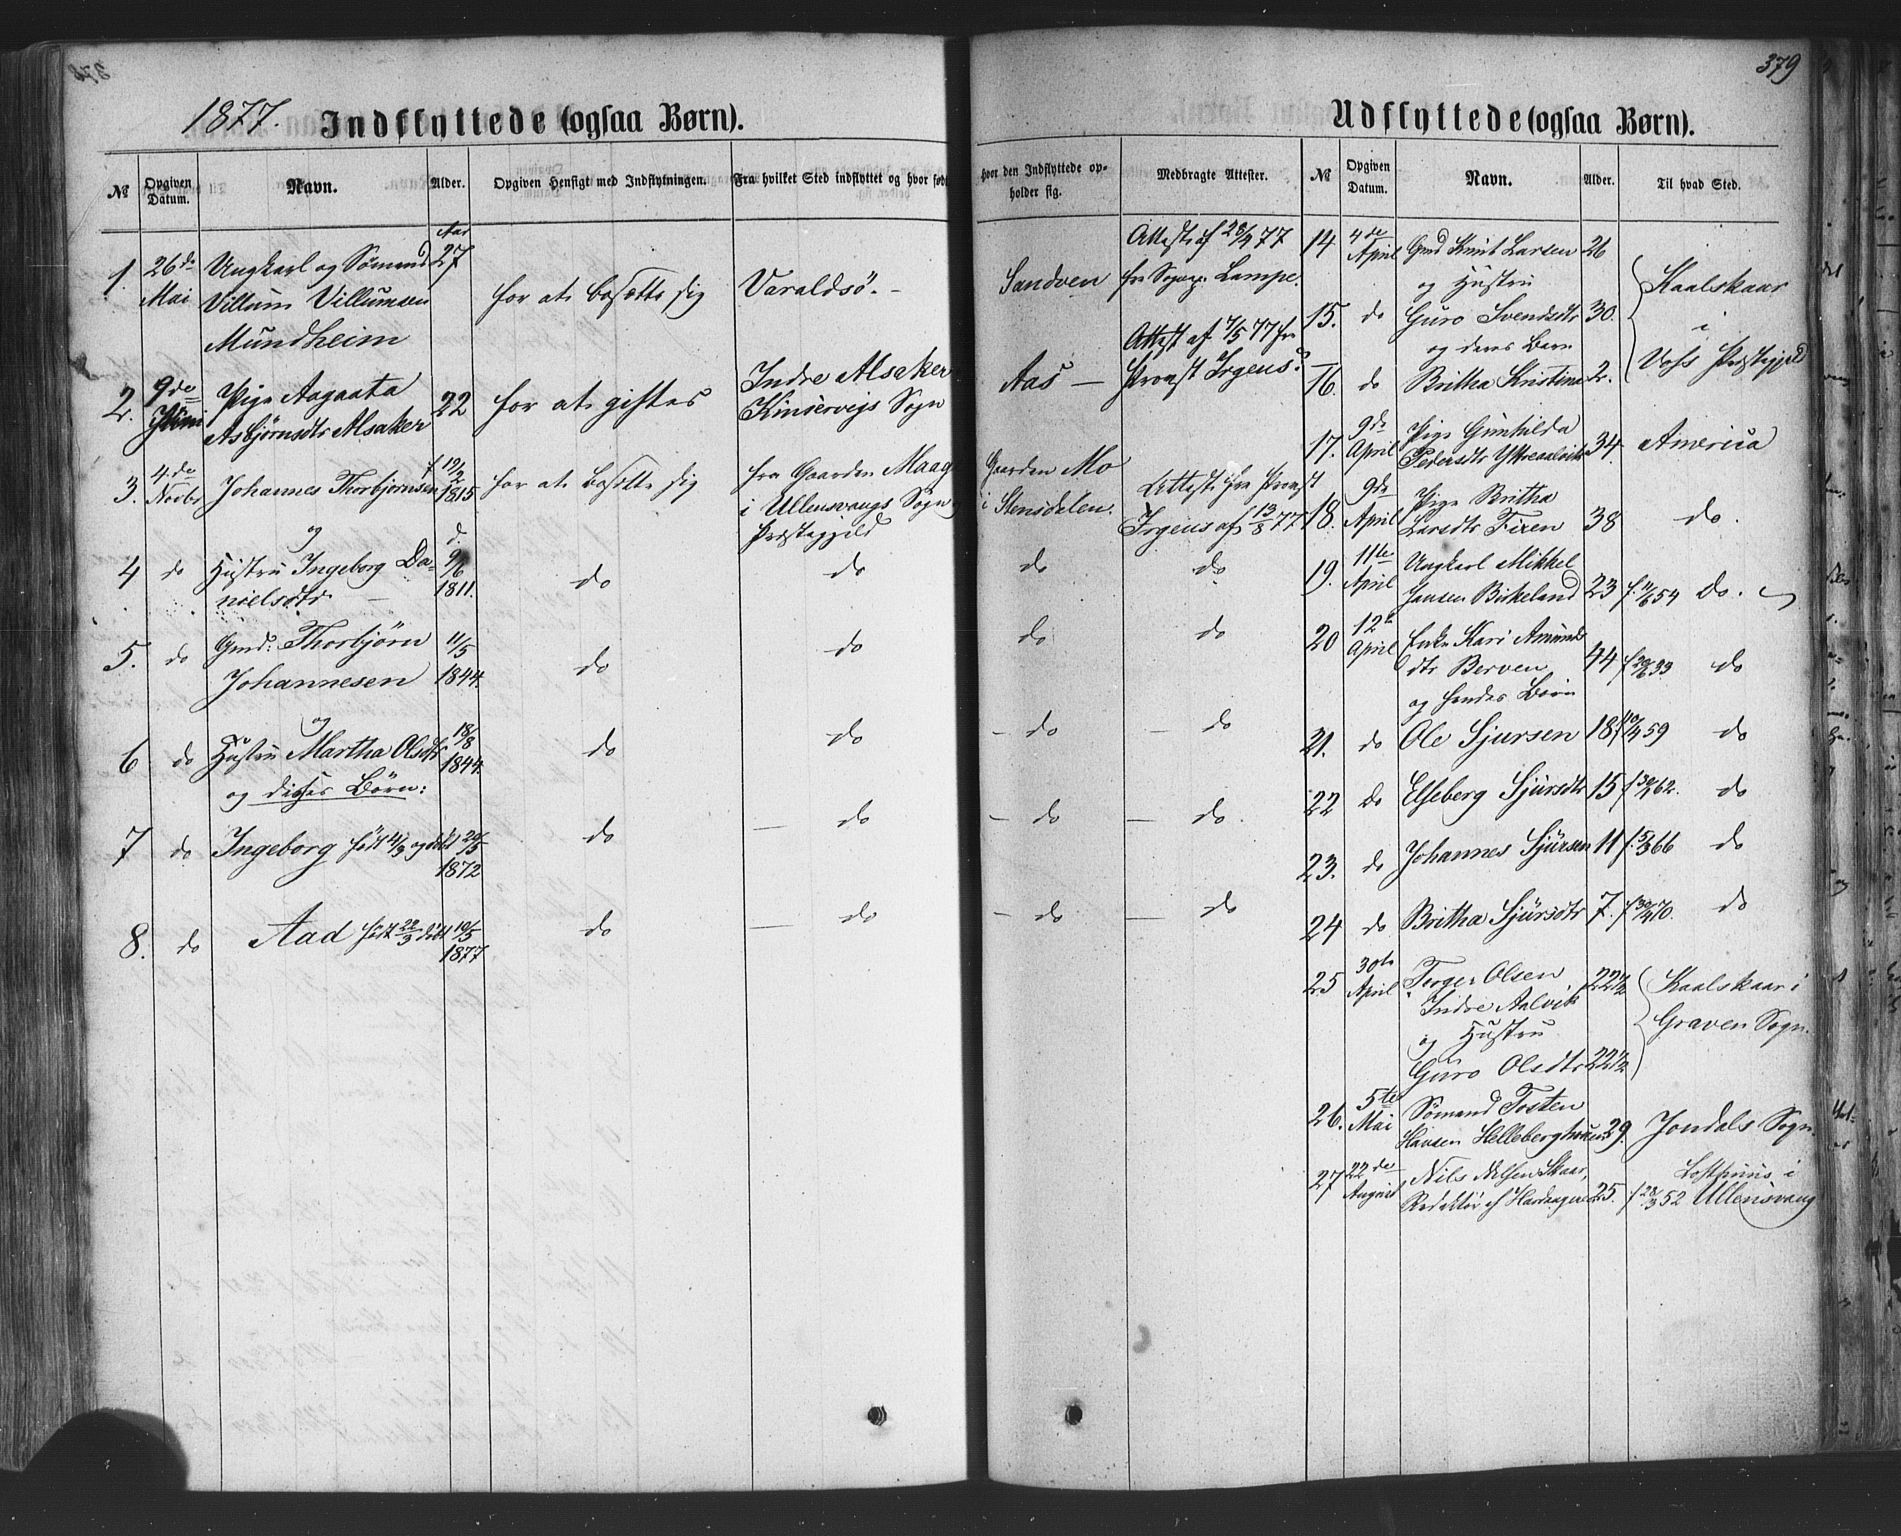 379
1877. Indflyttede (ogsaa Børn).
№ Opgiven Datum. Navn. Alder. Opgiven Hensigt med Indflytningen. Fra hvilket Sted indflyttet og hvor født
Hvor den Indflyttede opholder sig. Medbragte Attester.
1. 26de Mai Ungkarl og Sömand Aar 27 for at bosætte sig Varaldsö. - Sandven Attest af 28/4 77
Villum Villumsen fra Lampe.
Mundheim
2. 9de Juni Pige Aagaata 22 for at giftes Indre Alsaker Aas - Attest af 7/5 77 fra
Asbjørnsdtr Alsaker Kinservigs Sogn Provst Irgens.
3. 4de Novbr Johannes Thorbjørnsen f 19/2 1815 for at bosætte sig fra Gaarden Maage Gaarden Mo Attest fra Provst
og i Ullensvangs Sogn i Steinsdalen. Irgens af 13/8 77
Præstegjeld
4 do Hustru Ingeborg Da- d. 9/6 1811. do do do do
nielsdtr -
5. do Gmd: Thorbjørn 11/5 1844. do do do do
Johannesen
og
6 do Hustru Martha Olsdtr 18/8 1844. do do - do - do
og disses Børn:
7 do Ingeborg født 4/3 og døbt 20/5 1872 do - do - do - do.
8. do Aad født 22/3 døbt 10/5 1877 do - do - do - do
Udflyttede (ogsaa Børn).
№ Opgiven Datum. Navn. Alder. Til hvad Sted.
14 4de April Gmd Knut Larsen 26
og Hustru Kaalskaar
15. do Guro Svendsdtr 30. i
og deres Barn Voss Præstegjeld
16. do Britha Kristina 2.
17. 9de April Pige Gunhilda
Pedersdtr Ytreaalvik 34. America
18. 9de April Pige Britha
Larsdtr Tiren 38 do.
19. 11te April Ungkarl Mikkel
Hansen Birkeland 23 f. 11/6 54 do.
20 12te April Enke Kari Amunds
dtr Berven 44 f 29/6 33 do
og hendes Børn
21. do Ole Sjursen 18 f 10/4 59 do
22 do Elseberg Sjursdtr 15 f 30/4 62. do
23. do Johannes Sjursen 11 f. 5/3 66 do
24 do Britha Sjursdtr 7. f 30/4 70. do
25 30te April Torger Olsen 22 1/2 Kaalskaar i
Indre Aalvik Graven Sogn.
og Hustru
Guro Olsdtr 22 1/2
26. 5te Mai Sömand Tosten
Hansen Helleberghuus 29. Jondals Sogn.
27 22de August Nils Nilsen Skaar, Lofthuus i
Redaktør af Hardangeren 25. f 28/3 52 Ullensvang